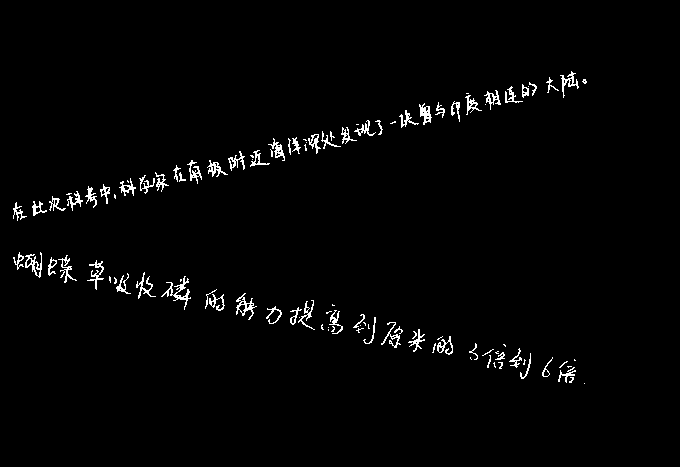 在此次科考中,科学家在南极附近海洋深处发现了一块曾与印度相连的大陆。
蝴蝶草吸收磷的能力提高到原来的3倍到6倍.